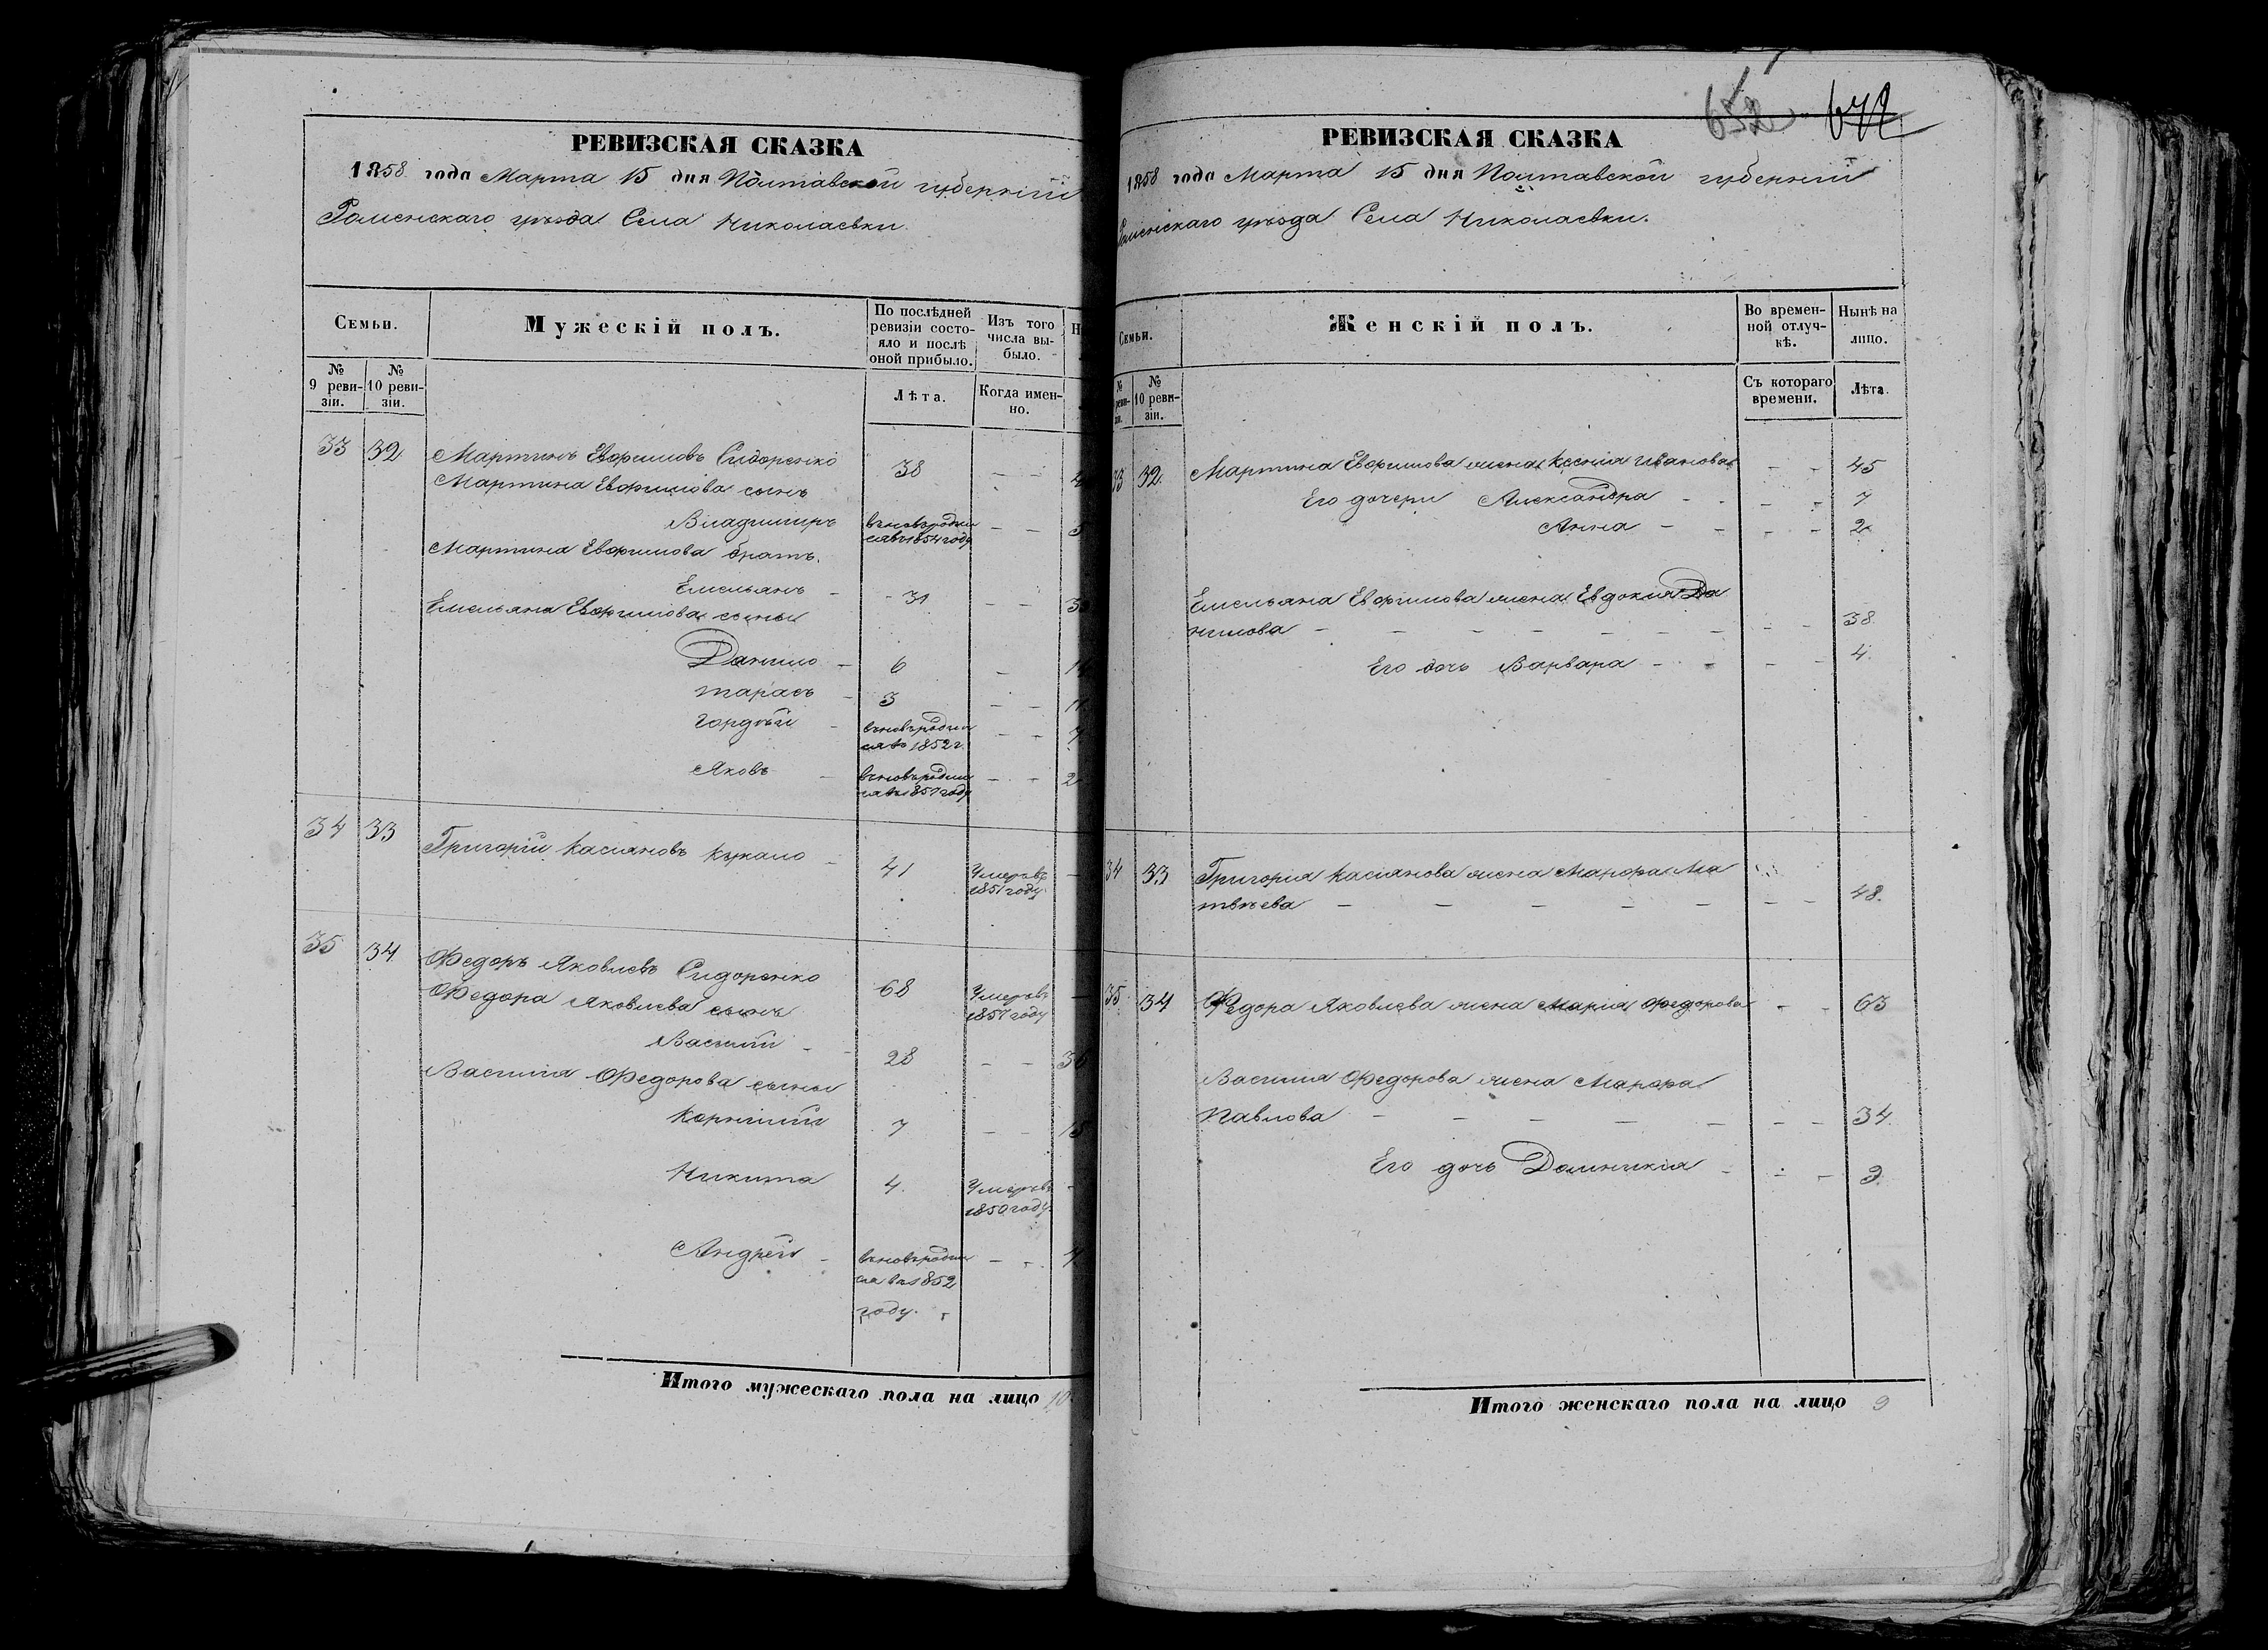 РЕВИЗСКАЯ СКАЗКА
1858 года Марта 15 дня Полтавской губернии
Роменскаго уезда Села Николаевки.
Семьи.
Мужескій полъ.
По послѣдней ревизіи состояло и послѣ оной прибыло.
Изъ того числа выбыло.
№ 9 ревизіи.
№ 10 ревизіи.
Лѣта.
Когда именно.
33 32 Мартинъ Евфимовъ Сидоренко 38 - -
Мартина Евфимова сынъ
Владимиръ вновьродил - -
ся въ 1854 году
Мартина Евфимова братъ.
Емельянъ - 31 - -
Емельяна Евфимова сыны
Данило - 6 -
Тарасъ - 3 - -
Гордѣй - вновьродил - -
ся въ 1852 г.
Яковъ - вновьродил - - 2
ся въ 1857 году
34 33 Григорій Касіяновъ - 41 Умеръ въ -
1857 году.
35 34 Федоръ Яковлевъ Сидоренко 68 Умеръ въ -
1857 году
Федора Яковлева сынъ
Василий - - 28 - - 36
Василия Федорова сыны
Корнилий 7 - - 15
Никита 4. Умеръ въ -
1850 году.
Андрей - вновьродил - - 7
ся въ 1852
году.
Итого мужескаго пола на лицо 10.
652 672
РЕВИЗСКАЯ СКАЗКА
1858 года Марта 15 дня Полтавской губерніи
Роменскаго уѣзда Села Николаевки.
Семьи.
Женскій полъ.
Во временной отлучкѣ.
Нынѣ на лицо.
№ 10 ревизіи.
Съ котораго времени.
Лѣта.
33 32. Мартина Евфимова жена Ксенія Иванова - - 45
Его дочери Александра - - - - 7
Анна - - - - 2
Емельяна Евфимова жена Евдокия Да
нилова - - - - - - - - - 38.
Его дочь Варвара - - - - 4.
34 33 Григорія Касіянова жена Ма
твѣева - - - - - - - 48.
35 34 Федора Яковлева жена Марія Федорова - - 63
Василия Федорова жена
Павлова - - - - - - - 34.
Его дочь Домникія - - - 9.
Итого женскаго пола на лицо 9